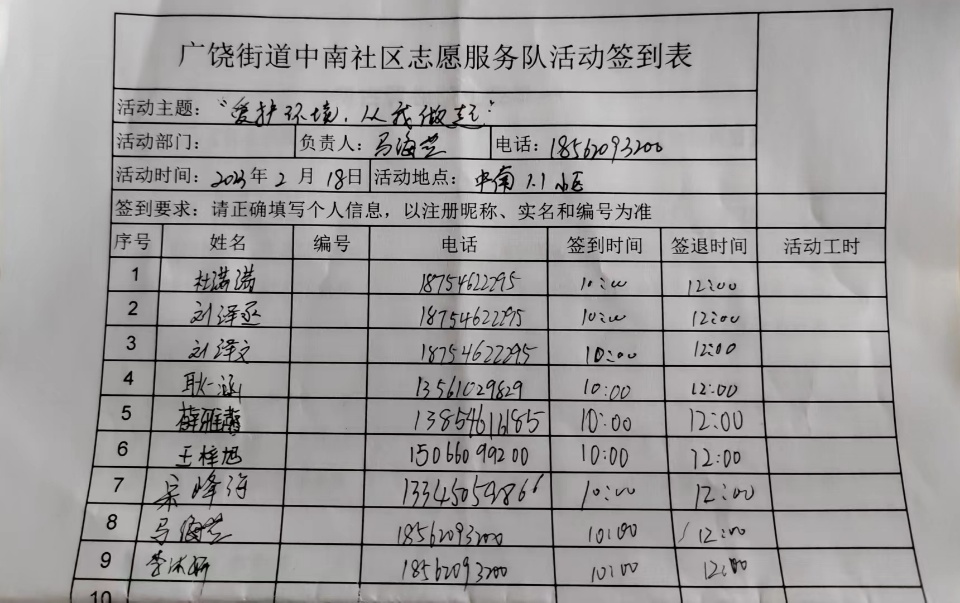 广饶街道中南社区志愿服务队活动签到表
活动主题：“爱护环境，从我做起”
活动部门： 负责人：马海芝 电话：18562093200
活动时间：2023年2月18日 活动地点：中南1.1小区
签到要求：请正确填写个人信息，以注册昵称、实名和编号为准
序号 姓名 编号 电话 签到时间 签退时间 活动工时
1 杜潇潇 18754622295 10:00 12:00
2 刘泽丞 18754622295 10:00 12:00
3 刘泽文 18754622295 10:00 12:00
4 耿一涵 13561029829 10:00 12:00
5 薛雅 13854611685 10:00 12:00
6 王梓旭 15066099200 10:00 12:00
7 宋峰海 13345059866 10:00 12:00
8 马海芝 18562093200 10:00 12:00
9 李沐妍 18562093200 10:00 12:00
10